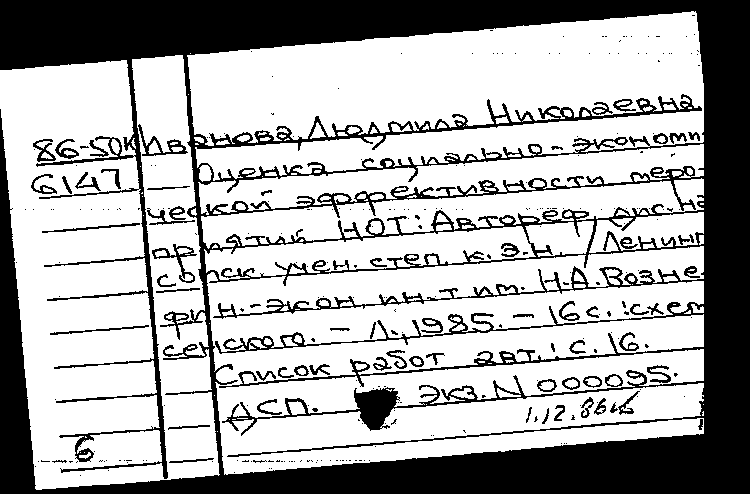 86-50К Иванова, Людмила Николаевна
6147 Оценка социально-экономи-
ческой эффективности меро-
приятий НОТ: Автореф. дис. на
соиск. учен. степ. к. э. н. / Ленингр
фин.-экон. ин-т им. Н.А. Возне-
сенского. - Л., 1985. - 16 с. : схем
Список работ авт.: с. 16.
АСП. Экз. N 000095.
1.12.86
6